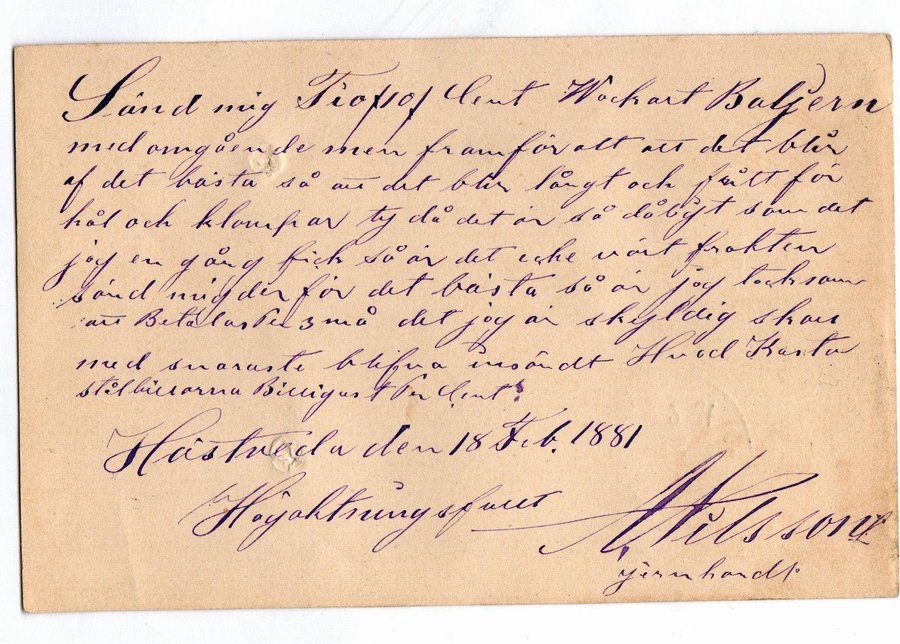 Sänd mig Tio /10/ Cent Wackart Baljern
med omgående men framför att att det blir
af det bästa så att det blir långt och fritt för
hål och klompar ty då det är så dåligt som det
jog en gång fick så är det icke värt frakten
sänd mig der för det bästa så är jog tacksam
att Betalas Per 3 må det jog är skyldig skal
med snaraste blifva insändt Hvad Kosta
stålbillarna Billigast Per Cent?
Hästveda den 18 Feb. 1881
Högaktningsfullt
A. Nilsson
jernhandl.